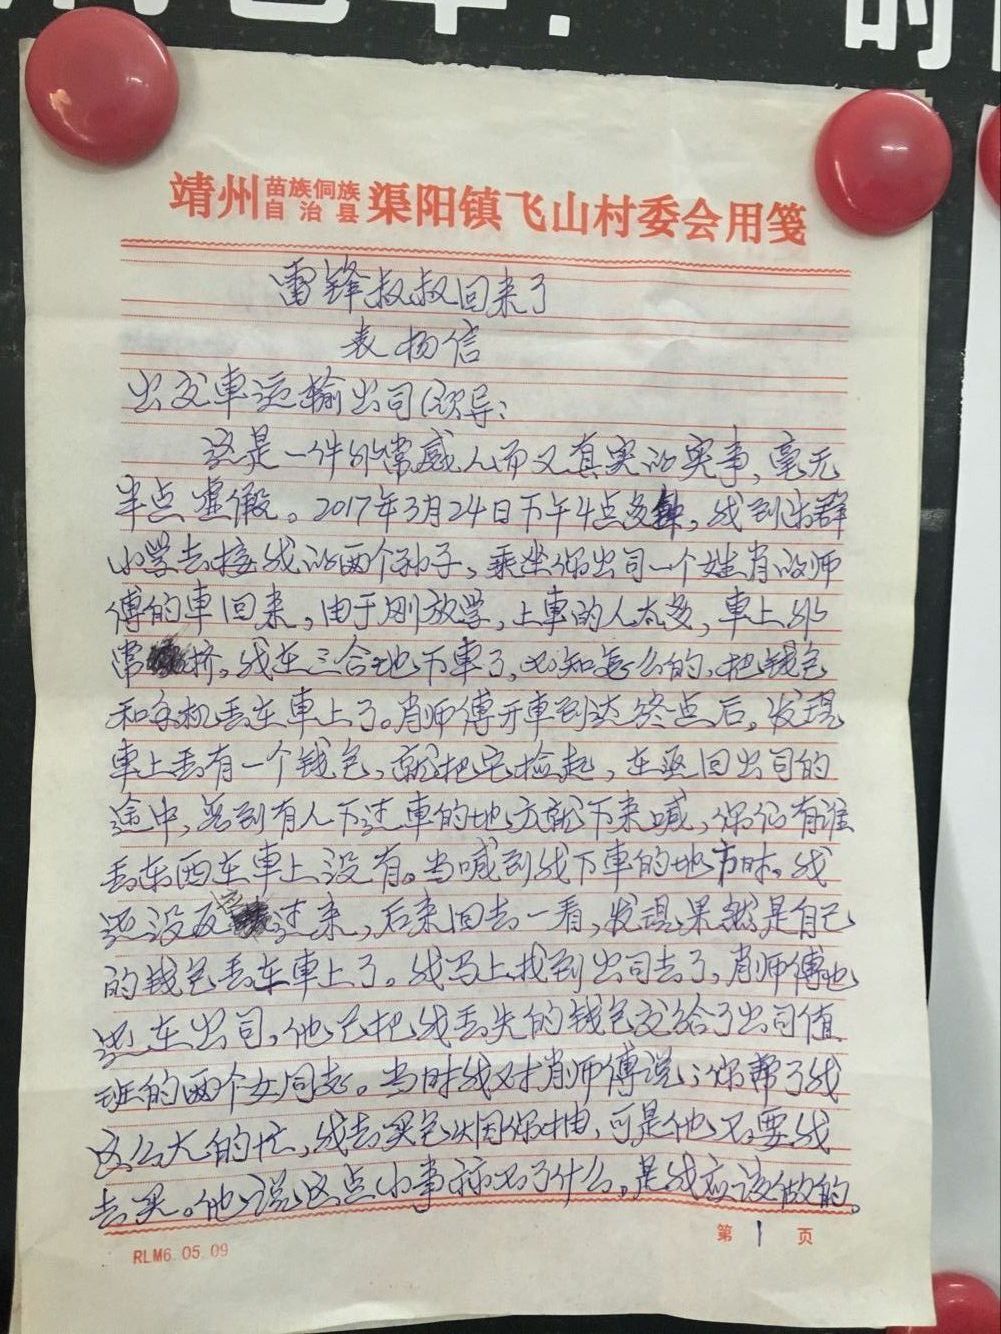 靖州苗族侗族自治县渠阳镇飞山村委会用笺
雷锋叔叔回来了
表扬信
公交車运输公司领导：
这是一件非常感人而又真实的实事，毫无
半点虚假。2017年3月24日下午4点多钟，我到乐群
小学去接我的两个孙子，乘坐你公司一个姓肖的师
傅的車回来，由于刚放学，上車的人太多，車上非
常挤。我在三合地下車了，不知怎么的，把钱包
和手机丢在車上了。肖师傅开車到达终点后，发现
車上丢有一个钱包，就把它捡起，在返回公司的
途中，每到有人下过車的地方就下来喊，你们有谁
丢东西在車上没有。当喊到我下車的地方时，我
还没反应过来，后来回去一看，发现果然是自己
的钱包丢在車上了。我马上找到公司去了，肖师傅也
在公司，他已把我丢失的钱包交给了公司值
班的两个女同志。当时我对肖师傅说：你帮了我
这么大的忙，我去买包烟你抽，可是他不要我
去买。他说这点小事称不了什么，是我应该做的。
第1页
RLM6.05.09